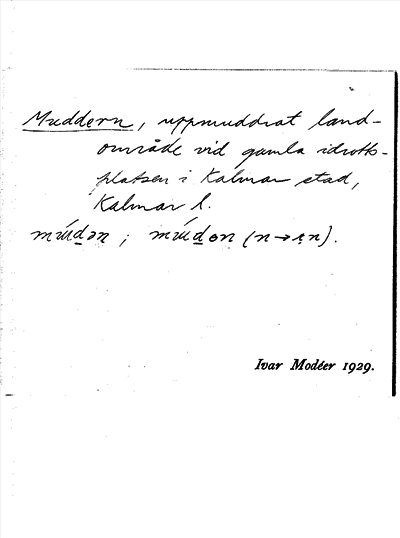 Muddern, uppmuddrat land-
område vid gamla idrotts-
platsen i Kalmar stad,
Kalmar l.
Ivar Modéer 1929.